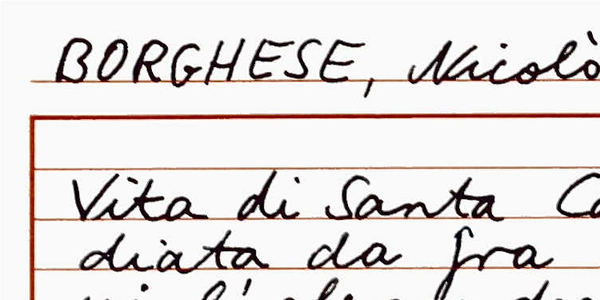 BORGHESE, Nicolò
Vita di Santa Ca
diata da fra